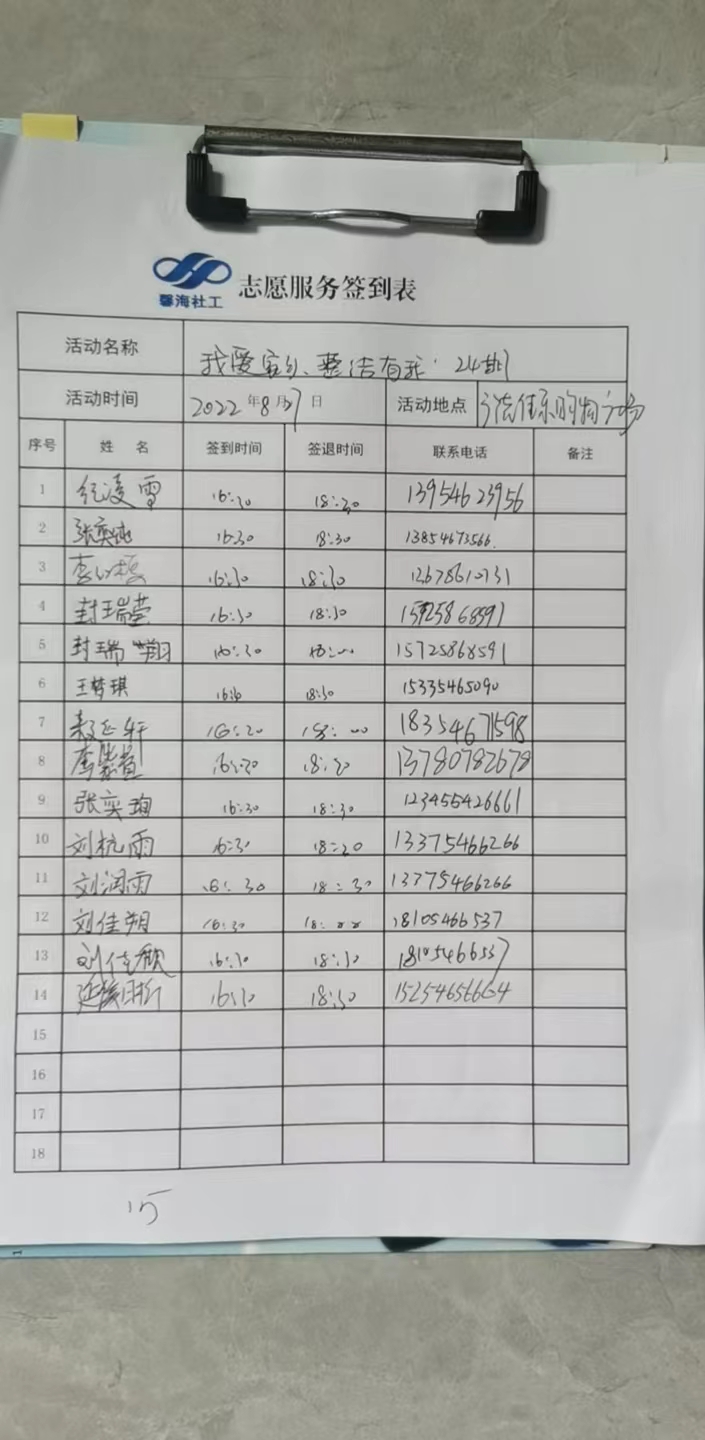 馨海社工 志愿服务签到表
活动名称 我爱家乡、整洁有我 24期
活动时间 2022年8月27日 活动地点
序号 姓名 签到时间 签退时间 联系电话 备注
1 纪凌雪 16:30 18:30 13954623956
2 张奕 16:30 18:30 13854673566.
3 16:30 18:30 12678610731
4 封瑞莹 16:30 18:30 868591
5 封瑞翔 16:30 15725868591
6 王梦琪 18:30 15335465090
7 轩 16:20 18:00 18354671598
8 李紫萱 16:20 18:20 13780782678
9 张奕珣 16:30 18:30 123455426661
10 刘杭雨 16:30 18:20 13375466266
11 刘润雨 16:30 18:30 13375466266
12 刘佳朔 16:30 18105466537
13 刘佳 16:30 18:30 18105466537
14 16:30 18:30 15254656664
15
16
17
18
15